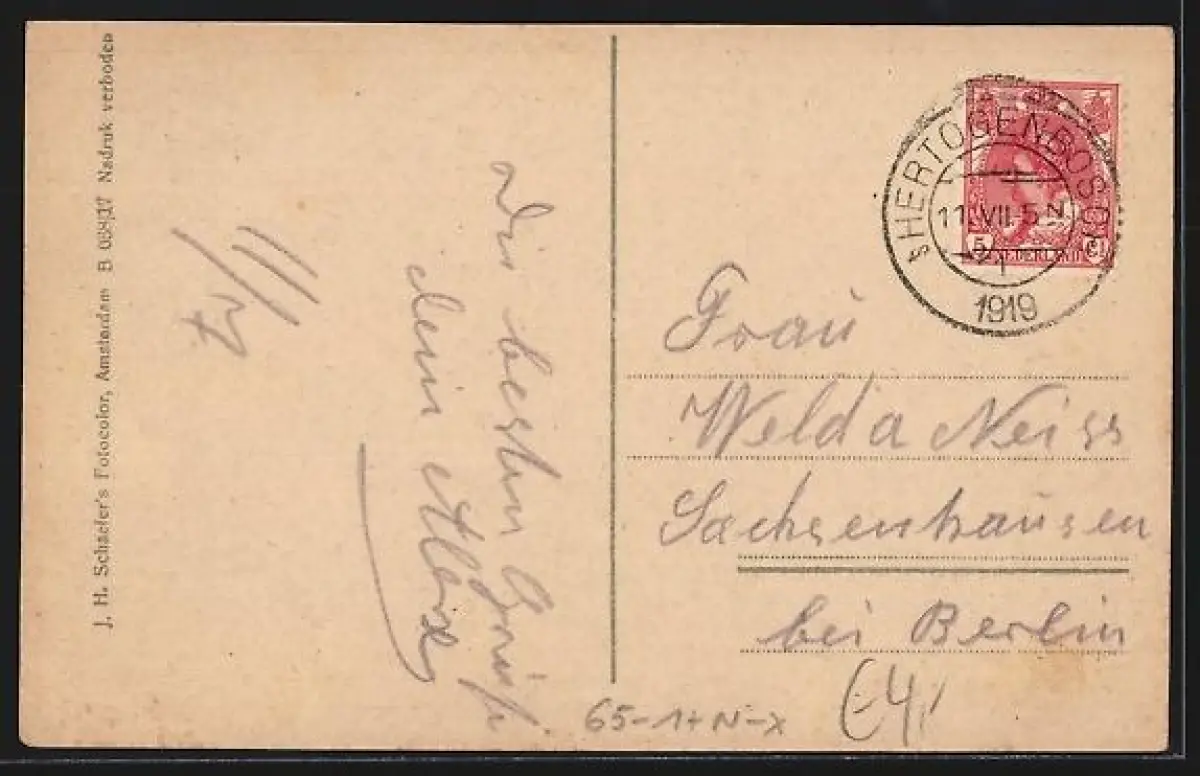 J. H. Schaefer's Fotocolor, Amsterdam B Nadruk verboden
11/7
Die besten Grüße
dein
'S HERTOGENBOSCH
11 VII 5 N
1
1919
5 5
NEDERLAND
Frau
Welda Neiss
Sachsenhausen
bei Berlin
65-1+N-X